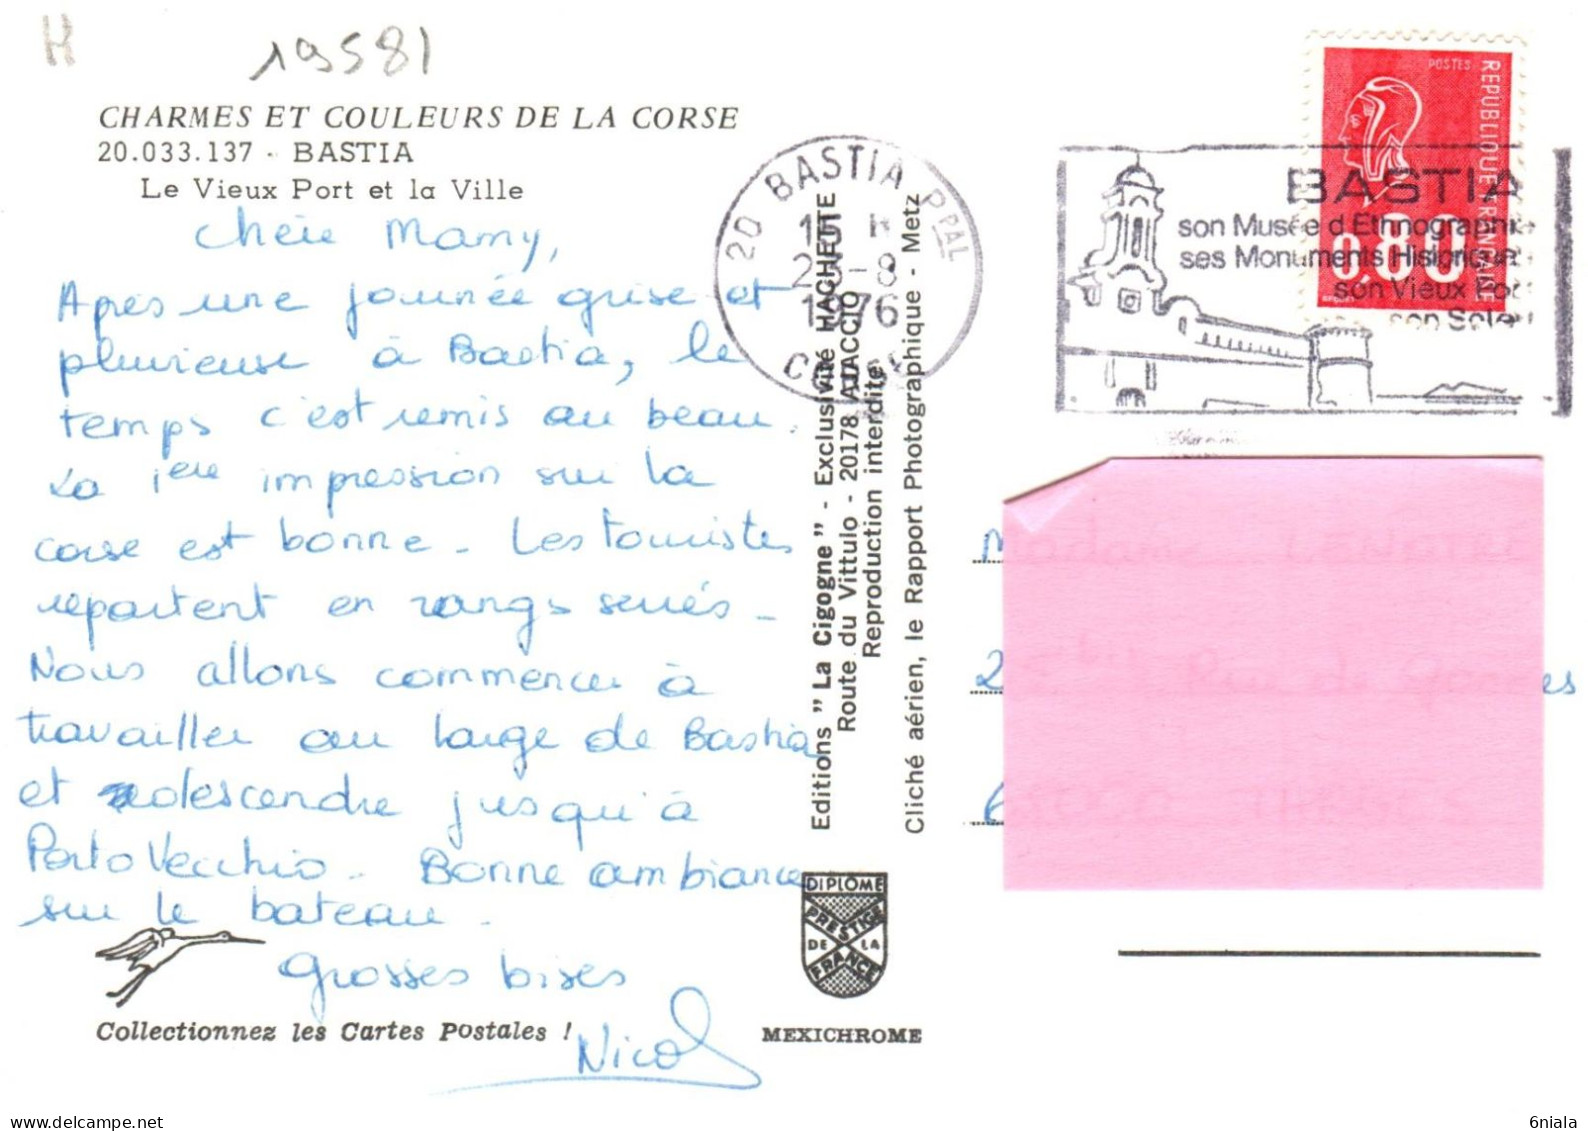 H
19581
CHARMES ET COULEURS DE LA CORSE
20.033.137 - BASTIA
Le Vieux Port et la Ville
Chère Mamy,
Après une journée grise et
pluvieuse à Bastia, le
temps c'est remis au beau.
La 1ere impression sur la
corse est bonne - Les touristes
repartent en rangs serrés -
Nous allons commencer à
travailler au large de Bastia
et descendre jusqu'à
Porto Vecchio - Bonne ambiance
sur le bateau.
Grosses bises
Nicol
Collectionnez les Cartes Postales !
Editions " La Cigogne " - Exclusivité HACHETTE
Route du Vittulo - 20178 AJACCIO
Reproduction interdite
Cliché aérien, le Rapport Photographique - Metz
DIPLOME
PRESTIGE
DE LA
FRANCE
MEXICHROME
20 BASTIA PPAL
1976
BASTIA
son Musée d'Ethnographie
ses Monuments Historiques
son Vieux Port
son Soleil
POSTES
REPUBLIQUE FRANCAISE
0,80
Madame
6niala